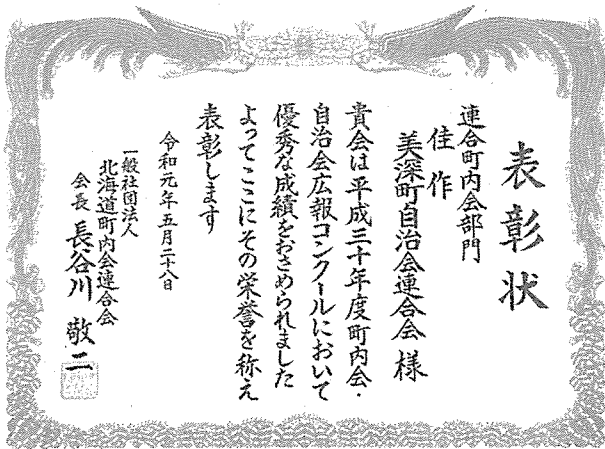 表彰状
連合町内会部門
佳作
美深町自治会連合会 様
貴会は平成三十年度町内会・
自治会広報コンクールにおいて
優秀な成績をおさめられました
よってここにその栄誉を称え
表彰します
令和元年五月二十八日
一般社団法人
北海道町内会連合会
会長 長谷川 敬二